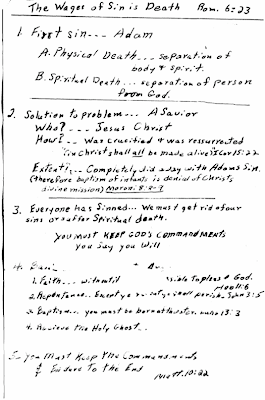 The Wages of Sin is Death Rom. 6:23
1. First sin--- Adam
A. Physical Death... Separation of
body & spirit.
B. Spiritual Death... separation of person
from God.
2. Solution to problem... A Savior
Who? --- Jesus Christ
How?.. Was crucified & was resurrected
"in Christ shall all be made alive" I Cor 15:22
Extent:.. Completely did away with Adams Sin.
(therefore baptism of infants is denial of Christs
divine mission) Moroni 8:2-9
3. Everyone has Sinned... We must get rid of our
sins or suffer Spiritual death.
YOU MUST KEEP GOD'S COMMANDMENTS
You say you Will
4.
1. Faith... without it to please God.
Heb 11:6
2. Repentance.. perish. 3:5
3. Baptism... you must be born 13:3
4. Receive the Holy Ghost..
5. You Must Keep The Commandments
& Endure To the End
Matt. 10:22